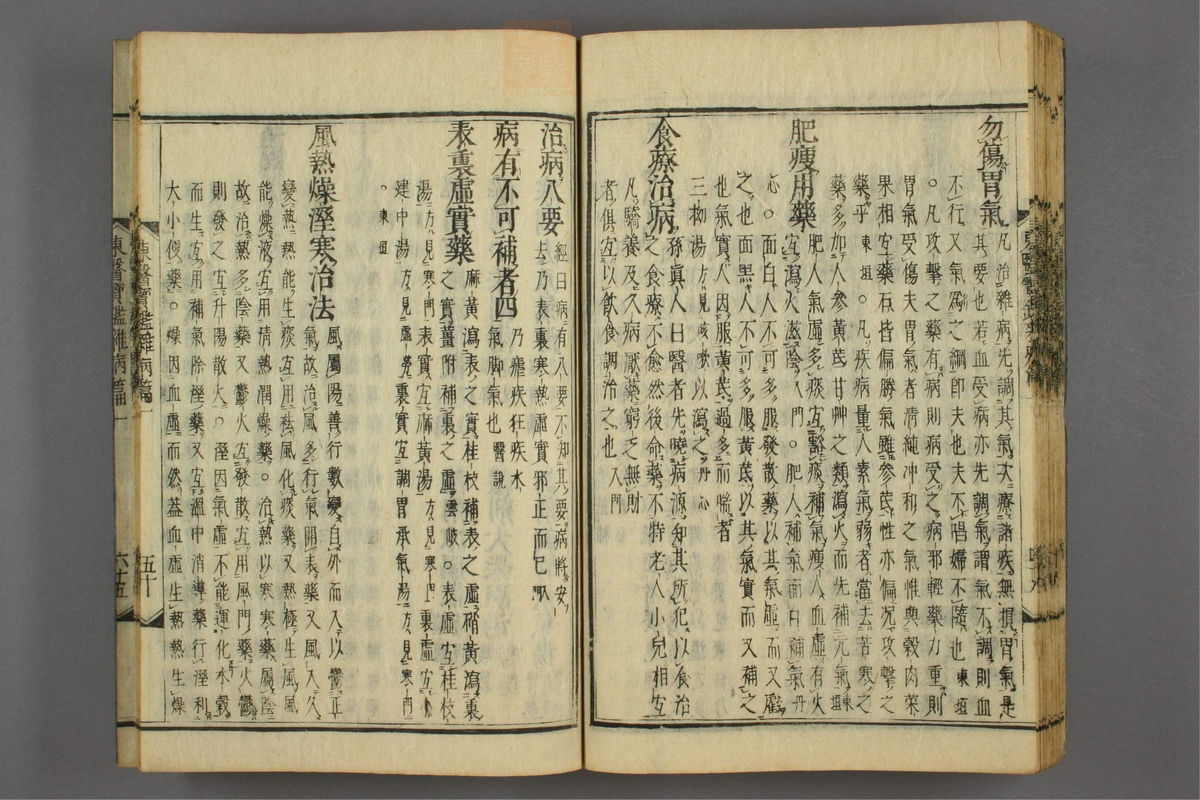 勿傷胃氣凡治雜病先調其氣次療諸疾無損胃氣是
其要也若血受病亦先調氣謂氣不調則血
不行又氣爲之綱即夫也夫不唱婦不隨也東垣
○凡攻擊之藥有病則病受之病邪輕藥力重則
胃氣受傷夫胃氣者清純冲和之氣惟與穀肉菜
果相宜藥石皆偏勝氣雖參芪性亦偏況攻擊之
藥乎東垣○凡疾病量人素氣弱者當去苦寒之
藥多加人參黄芪甘艸之類瀉火而先補元氣東垣
肥瘦用藥肥人氣虛多痰宜豁痰補氣瘦人血虛有火
宜瀉火滋陰入門○肥人補氣面白補氣丹
心○面白人不可多服發散藥以其氣虛而又虧
之也面黑人不可多服黄芪以其氣實而又補之
也氣實人因服黄芪過多而喘者
三拗湯方見咳嗽以瀉之丹心
食療治病孫眞人曰醫者先曉病源知其所犯以食治
之食療不愈然後命藥不特老人小兒相宜
凡驕養及久病厭藥窮乏無財
者俱宜以飮食調治之也入門
治病八要經曰病有八要不知其要病將安
去乃表裏寒熱虛實邪正而已入門
病有不可補者四乃瘧疾狂疾水
氣脚氣也醫說
表裏虛實藥麻黄瀉表之實桂枝補表之虛硝黄瀉裏
之實薑附補裏之虛雲岐○表虛宜桂枝
湯方見寒門表實宜麻黄湯方見寒門裏虛宜小
建中湯方見虛勞裏實宜調胃承氣湯方見寒門
○東垣
風熱燥溼寒治法風屬陽善行數變自外而入以鬱正
氣故治風多行氣開表藥又風入久
變熱熱能生痰宜用祛風化痰藥又熱極生風風
能燥液宜用清熱潤燥藥○治熱以寒寒藥屬陰
故治熱多陰藥又鬱火宜發散宜用風門藥火鬱
則發之宜升陽散火○溼因氣虛不能運化水穀
而生宜用補氣除溼藥又宜溫中消導藥行溼利
大小便藥○燥因血虛而然盖血虛生熱熱生燥
東醫寶鑑雜病篇一
五十
六十五